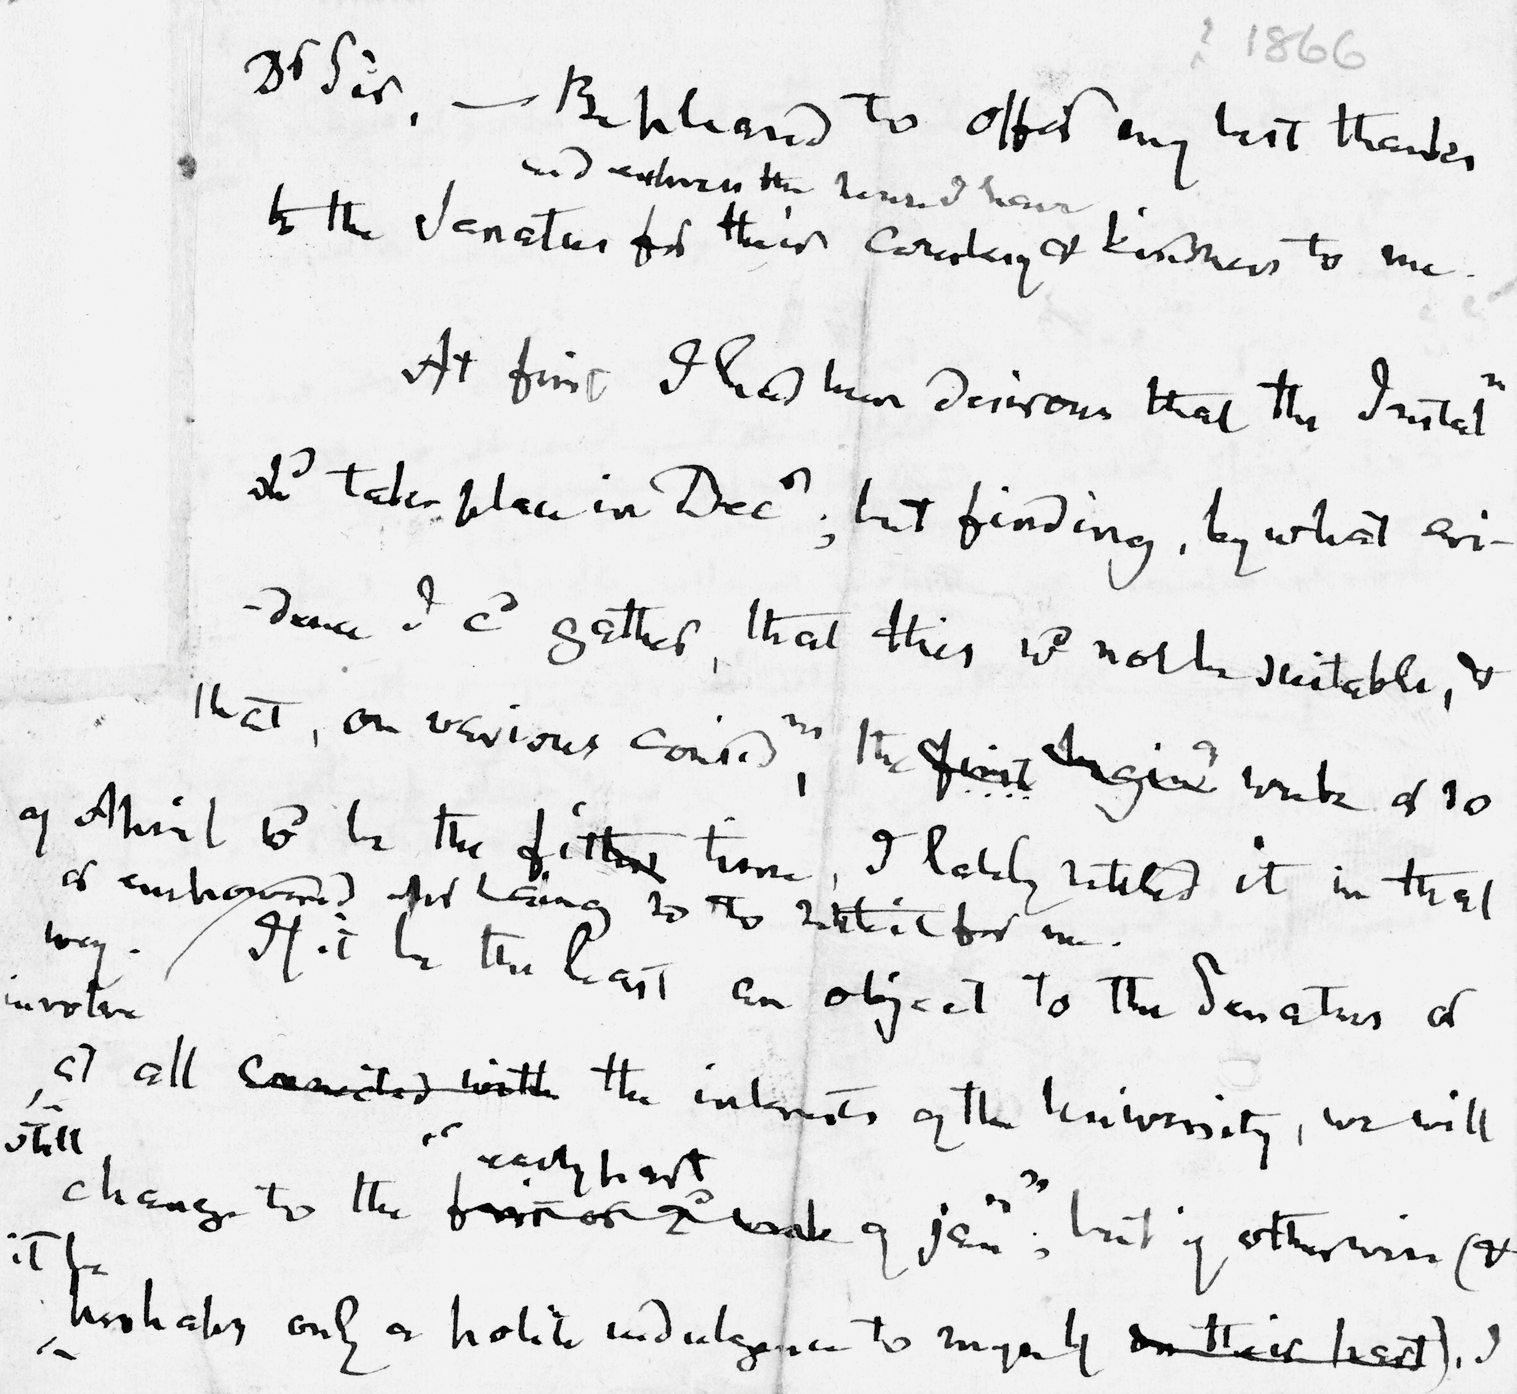 ? 1866
Dr Sir, — Be pleased to offer my best thanks
and express the honour I have
to the Senatus for their courtesy & kindness to me.
At first I had been desirous that the Instaln
shd take place in Decr; but finding, by what evi-
-dence I cd gather, that this wd not be suitable, &
that, on various considns, the first beging week or so
of April wd be the fittest time, I lately settled it in that
or empowered for being so to settle it for me.
way. If it be the least an object to the Senatus or
involve
at all connected with the interests of the University, we will
still
early part
change to the first or 2d week of Jany; but if otherwise (&
it be
perhaps only a polite indulgence to myself on their part), I